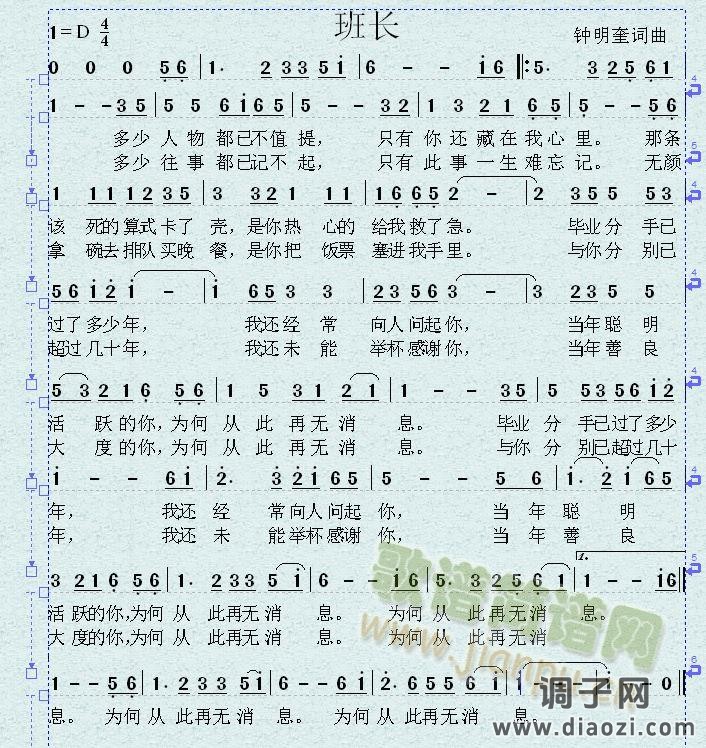 班长
1=D 4/4
钟明奎词曲
0 0 0 56 | 1· 2 3351 | 6 - - 16 |: 5· 32561
1 - - 35 | 5 5 6165 | 5 - - 32 | 1 3 21 65 | 5 - - 56
多少 人 物 都已不值 提， 只有 你 还 藏在 我 心 里。 那条
多少 往 事 都已记不 起， 只有 此 事 一生 难 忘 记。 无颜
1 11 1235 | 3 321 1 11 | 16 65 2 - | 2 355 5 53
该 死的 算式 卡了 壳，是你 热 心的 给我 救了 急。 毕业 分 手已
拿 碗去 排队 买晚 餐，是你 把 饭票 塞进 我手 里。 与你 分 别已
56 12 1 - | 1 65 3 3 | 23 56 3 - | 3 235 5 5
过了 多少 年， 我还 经 常 向人 问起 你， 当年 聪 明
超过 几十 年， 我还 未 能 举杯 感谢 你， 当年 善 良
53 216 56 | 1 5 31 21 | 1 - - 35 | 5 5 56 12
活 跃的 你，为何 从 此 再无 消 息。 毕业 分 手已 过了 多少
大 度的 你，为何 从 此 再无 消 息。 与你 分 别已 超过 几十
1 - - 61 | 2· 321 65 | 5 - - 56 | 1· 21 65
年， 我还 经 常向人 问起 你， 当 年 聪 明
年， 我还 未 能举杯 感谢 你， 当 年 善 良
1.
3 216 56 | 1· 2335 1 | 6 - - 16 | 5· 3256 1 | 1 - - 16 :|
活跃的你，为何 从 此再无消 息。 为何 从 此再无消 息。
大度的你，为何 从 此再无消 息。 为何 从 此再无消
1 - - 56 | 1· 2335 51 | 6 - - 16 | 2· 6556 1 | 1 - - - | 1 - - 0 |
息。 为何 从 此再无消 息。 为何 从 此再无消 息。
歌谱简谱网
www.jianpu.cn
调子网
www.diaozi.com